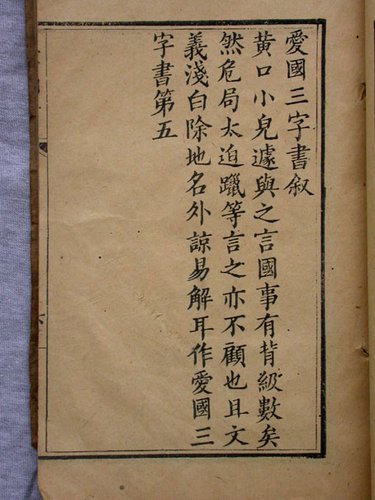 愛國三字書叙
黄口小兒遽與之言國事有背級數矣
然危局太迫躐等言之亦不顧也且文
義淺白除地名外諒易解耳作愛國三
字書第五